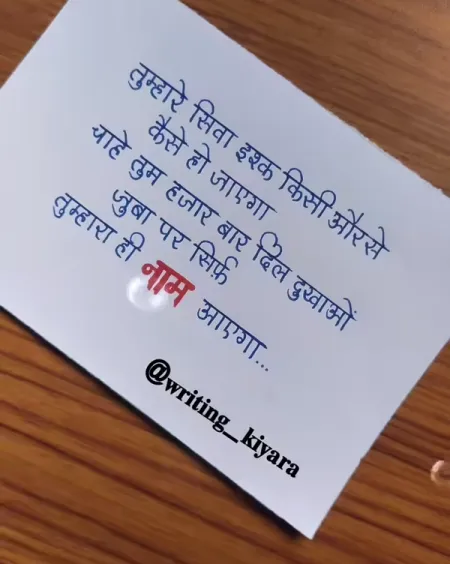 तुम्हारे सिवा इश्क किसी औरसे
कैसे हो जाएगा
चाहे तुम हजार बार दिल दुखाओं
जुबा पर सिर्फ़
तुम्हारा ही नाम आएगा...
@writing_kiyara